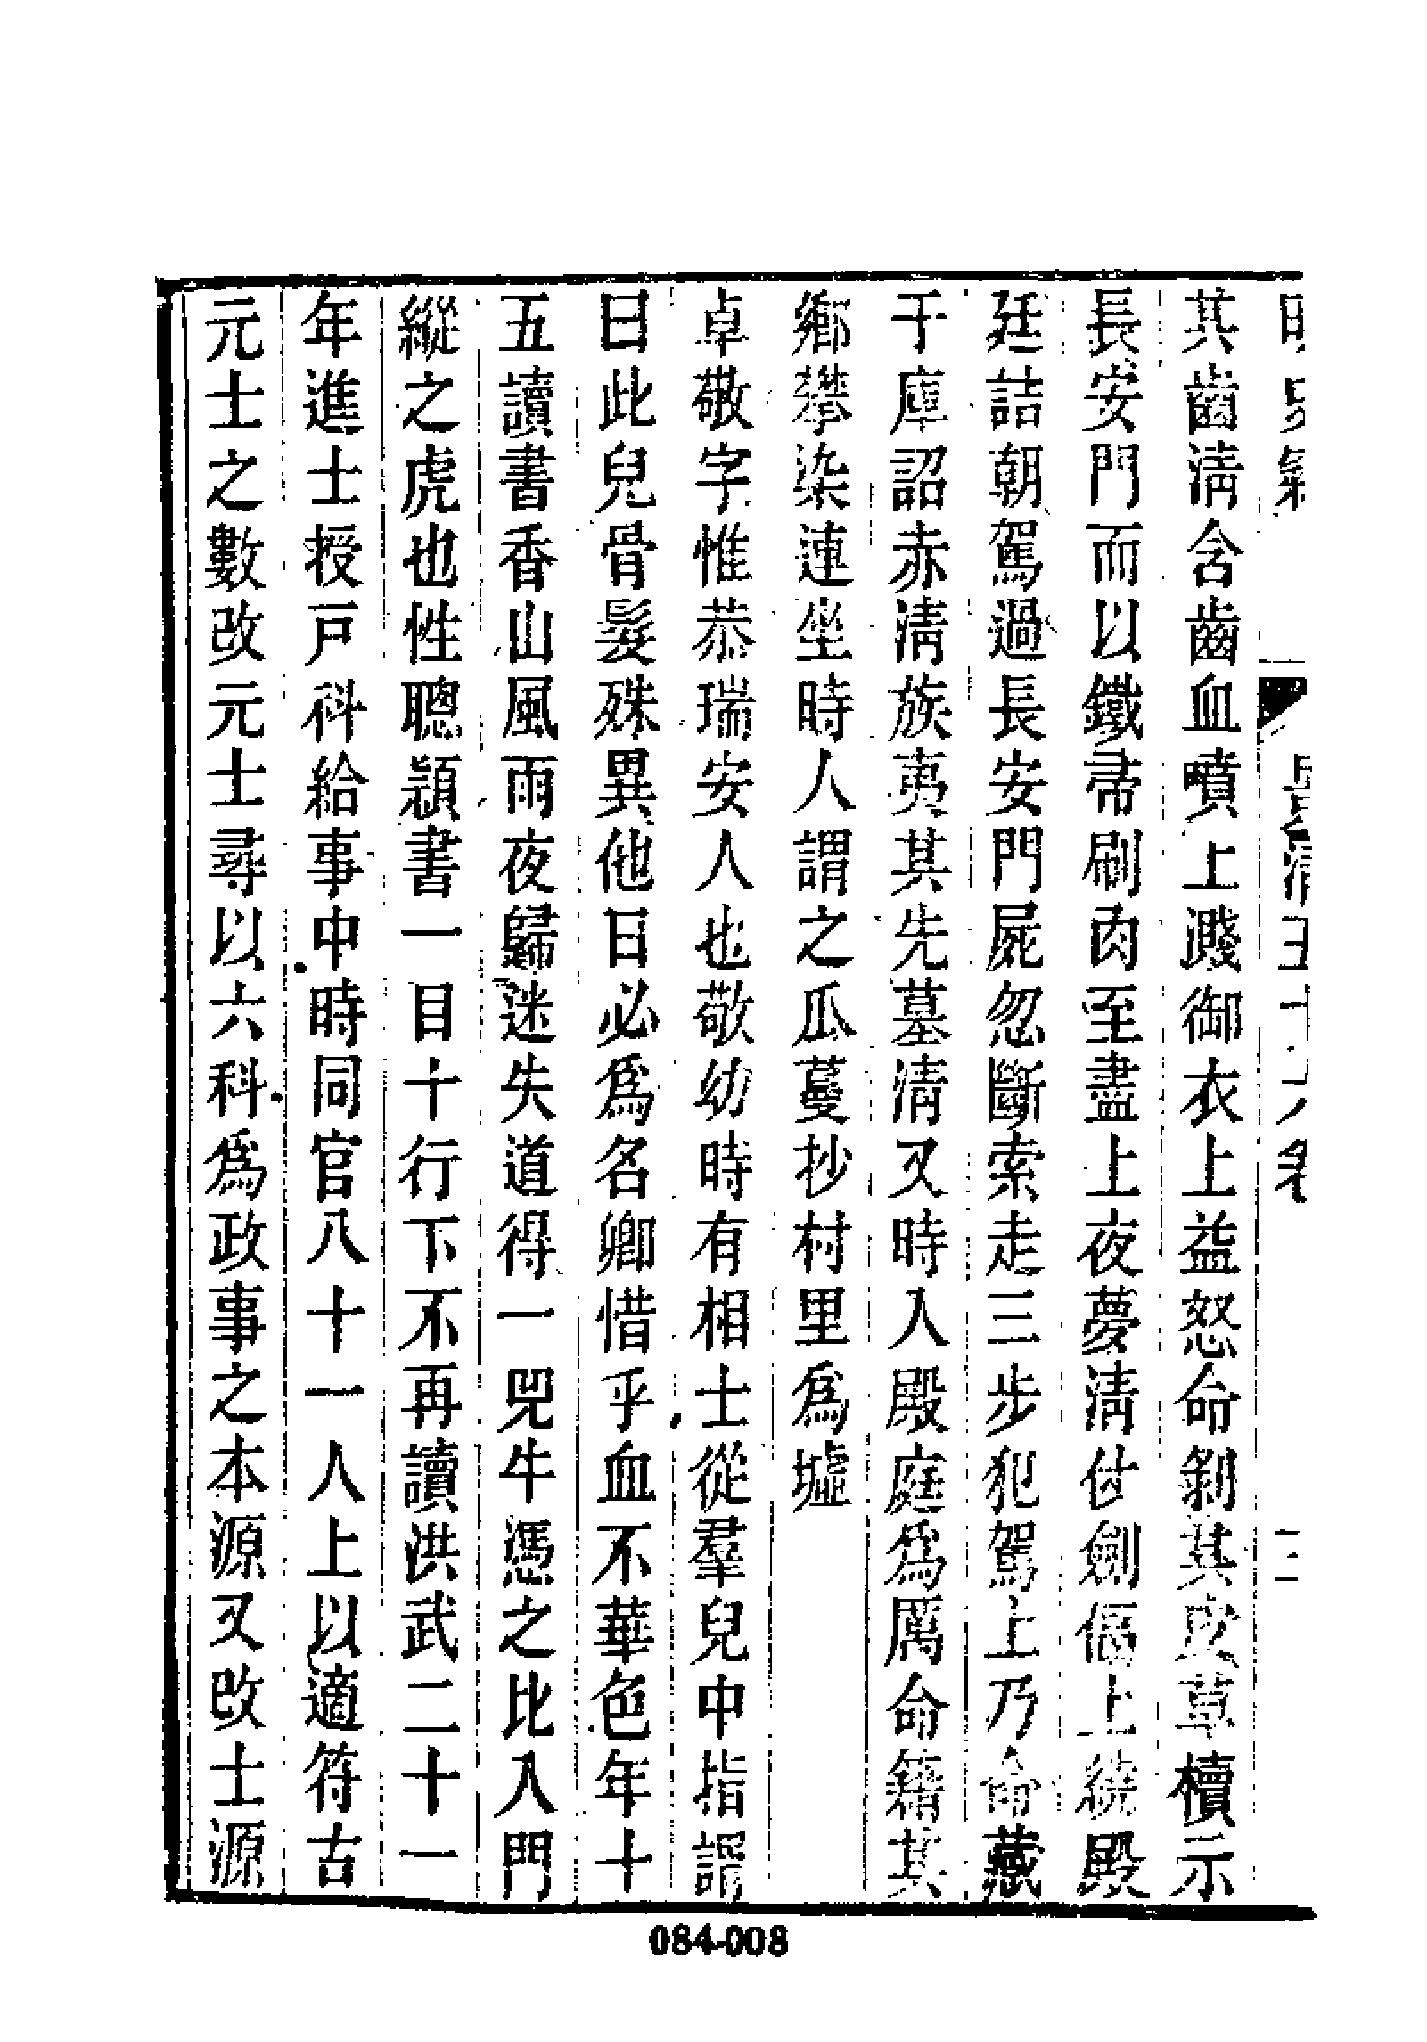 其齒淸含齒血噴上濺御衣上益怒命剝其皮草櫝示
長安門而以鐵帚刷肉至盡上夜夢淸仗劍傴上繞殿
廷詰朝駕過長安門屍忽斷索走三步犯駕上乃命藏
于庫詔赤淸族夷其先墓淸又時入殿庭爲厲命籍其
鄉攀染連坐時人謂之瓜蔓抄村里爲墟
卓敬字惟恭瑞安人也敬幼時有相士從羣兒中指謂
曰此兒骨髮殊異他日必爲名卿惜乎血不華色年十
五讀書香山風雨夜歸迷失道得一兕牛馮之比入門
縱之虎也性聰穎書一目十行下不再讀洪武二十一
年進士授戸科給事中時同官八十一人上以適符古
元士之數改元士尋以六科爲政事之本源又改士源
084-008